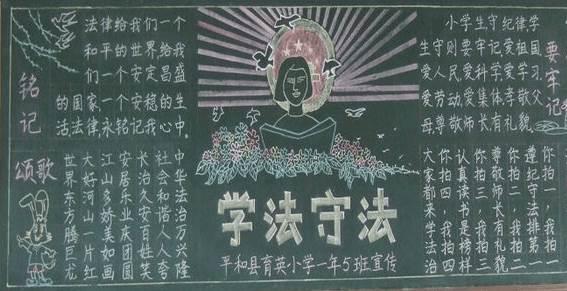 铭记
法律给我们一个
和平的世界给我
们一个安定昌盛
的国家一个安稳的生
活法律,永铭记我心中。
颂歌
中华法治万兴隆
社会和谐人人夸
长治久安百姓笑
安居乐业庆团圆
江山多娇美如画
大好河山一片红
世界东方腾巨龙
学法守法
平和县育英小学一年5班宣传
要牢记
小学生守纪律,学
生守则要牢记爱祖国
爱人民,爱科学爱学习.
爱劳动,爱集体孝敬父
母.尊敬师长有礼貌
你拍一,我拍一
遵纪守法排第一
你拍二,我拍二
尊敬师长有礼貌
你拍三,我拍三
认真读书是榜样
你拍四,我拍四
大家都来学法治